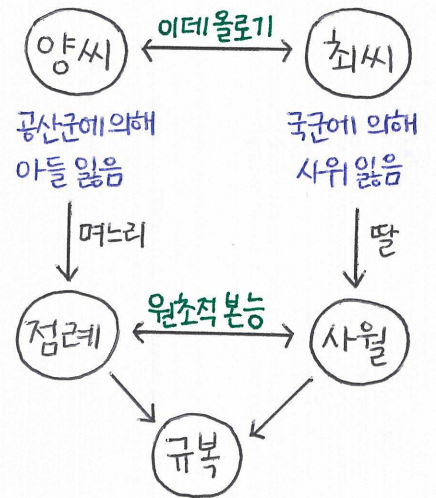 양씨 이데올로기 최씨
공산군에 의해 국군에 의해
아들 잃음 사위 잃음
며느리 딸
점례 원초적 본능 사월
규복